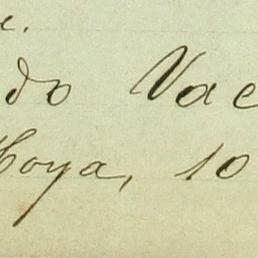 e.
do Vac
Hoya, 10